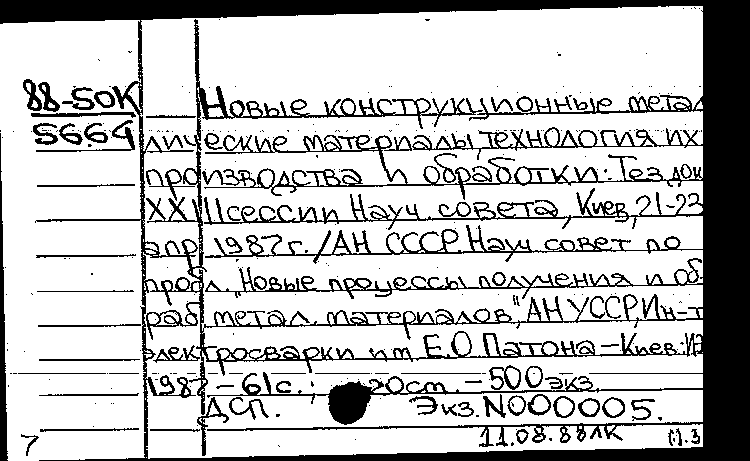 88-50К
5664
Новые конструкционные метал
лические материалы, технология их
производства и обработки: Тез. док
XXIII сессии Науч. совета, Киев, 21-23
апр. 1987 г. / АН СССР. Науч. совет по
пробл. "Новые процессы получения и об-
раб. метал. материалов", АН УССР, Ин-т
электросварки им. Е.О. Патона – Киев: ИЭ
1987 – 61 с.; 20 см. – 500 экз.
ДСП. Экз. N000005.
11.08.88 ЛК
7